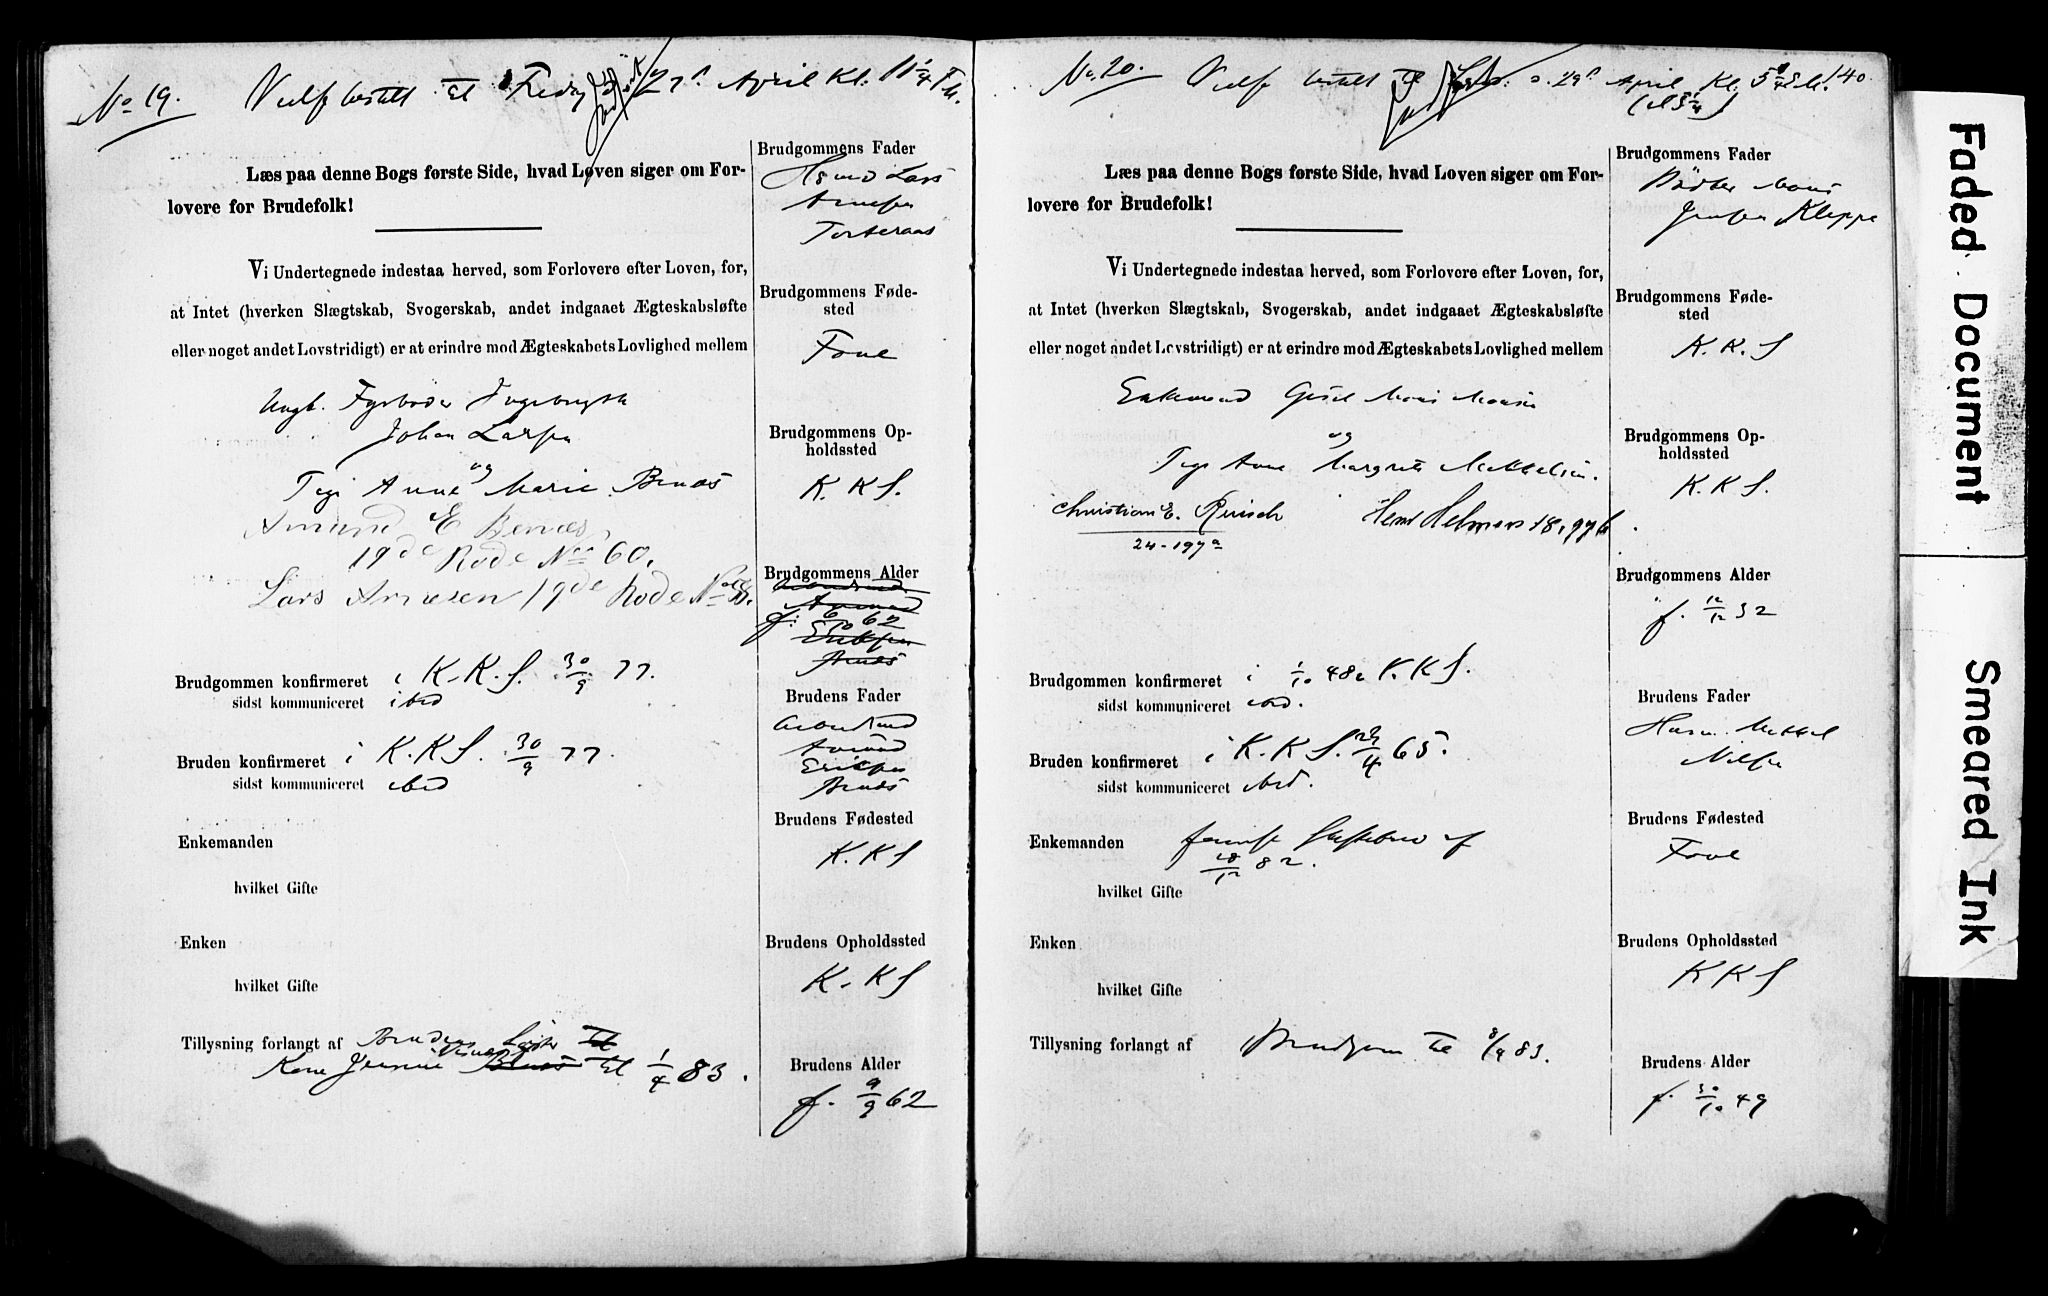 No 19. Vielse bestilt til Fredag d. 27 April Kl. 11 1/4 Fm.
Læs paa denne Bogs første Side, hvad Loven siger om For-
lovere for Brudefolk!
Vi Undertegnede indestaa herved, som Forlovere efter Loven, for,
at Intet (hverken Slægtskab, Svogerskab, andet indgaaet Ægteskabsløfte
eller noget andet Lovstridigt) er at erindre mod Ægteskabets Lovlighed mellem
Ungk. Fyrbøder Ingebrigt
Johan Larsen
og
Pige Anne Marie Benæs
Amund E Benæs,
19de Rode No 60.
Lars Arnesen 19de Rode No
Brudgommen konfirmeret i K. K. S. 30/9 77.
sidst kommuniceret ibid
Bruden konfirmeret i K. K S. 30/9 77.
sidst kommuniceret ibid
Enkemanden
hvilket Gifte
Enken
hvilket Gifte
Tillysning forlangt af Brudens Søster
Kone til 1/4 83.
Brudgommens Fader
Lars
Arnesen
Brudgommens Føde-
sted
Brudgommens Op-
holdssted
K. K S.
Brudgommens Alder
f. 62
Brudens Fader
Arbeidsmd
Amund
Eriksen
Brudens Fødested
K. K S
Brudens Opholdssted
K. K S
Brudens Alder
f. 9/9 62
No. 20. Vielse bestilt til d. 29 April Kl. 5
140
Læs paa denne Bogs første Side, hvad Loven siger om For-
lovere for Brudefolk!
Vi Undertegnede indestaa herved, som Forlovere efter Loven, for,
at Intet (hverken Slægtskab, Svogerskab, andet indgaaet Ægteskabsløfte
eller noget andet Lovstridigt) er at erindre mod Ægteskabets Lovlighed mellem
Enkemand Mons Monsen
og
Pige Anne Margrete Mikkelsen.
Christian E. Reusch
24-197a
Helmers 18,97b.
Brudgommen konfirmeret i 1/10 48 i K. K S.
sidst kommuniceret ibid.
Bruden konfirmeret i K. K S. 23/4 65.
sidst kommuniceret ibid.
Enkemanden Skiftebrev af
18/12 82.
hvilket Gifte
Enken
hvilket Gifte
Tillysning forlangt af Brudgom til 8/4 83.
Brudgommens Fader
Bødker Mons
Jensen Kleppe
Brudgommens Føde-
sted
K. K. S
Brudgommens Op-
holdssted
K. K S.
Brudgommens Alder
f. 12/12 32
Brudens Fader
Husm. Mikkel
Nilsen
Brudens Fødested
Brudens Opholdssted
K K S
Brudens Alder
f. 30/10 49
Faded Document
Smeared Ink